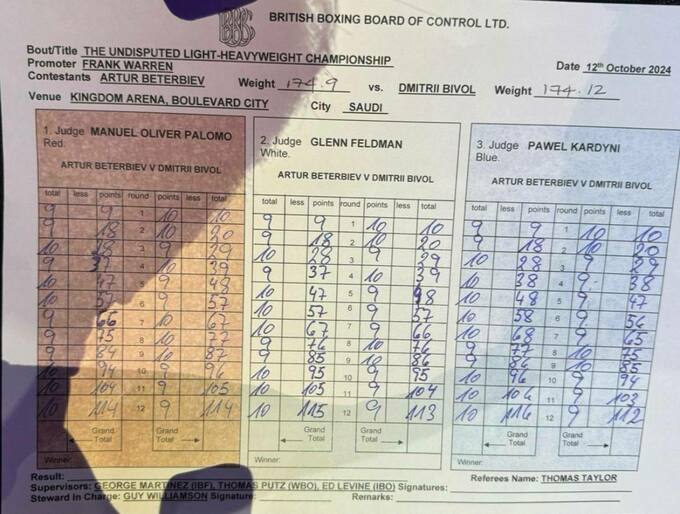 BRITISH BOXING BOARD OF CONTROL LTD.
Bout/Title THE UNDISPUTED LIGHT-HEAVYWEIGHT CHAMPIONSHIP
Promoter FRANK WARREN Date 12th October 2024
Contestants ARTUR BETERBIEV Weight 174.9 vs. DMITRII BIVOL Weight 174.12
Venue KINGDOM ARENA, BOULEVARD CITY City SAUDI
1. Judge MANUEL OLIVER PALOMO
Red.
ARTUR BETERBIEV V DMITRII BIVOL
total less points round points less total
9 9 1 10 10
9 18 2 10 20
10 28 3 9 29
9 37 4 10 39
10 47 5 9 48
10 57 6 9 57
9 66 7 10 67
9 75 8 10 77
9 84 9 10 87
10 94 10 9 96
10 104 11 9 105
10 114 12 9 114
Grand Total Grand Total
Winner:
2. Judge GLENN FELDMAN
White.
ARTUR BETERBIEV V DMITRII BIVOL
total less points round points less total
9 9 1 10 10
9 18 2 10 20
10 28 3 9 29
9 37 4 10 39
10 47 5 9 48
10 57 6 9 57
10 67 7 9 66
9 76 8 10 76
9 85 9 10 86
10 95 10 9 95
10 105 11 9 104
10 115 12 9 113
Grand Total Grand Total
Winner:
3. Judge PAWEL KARDYNI
Blue.
ARTUR BETERBIEV V DMITRII BIVOL
total less points round points less total
9 9 1 10 10
9 18 2 10 20
10 28 3 9 29
10 38 4 9 38
10 48 5 9 47
10 58 6 9 56
10 68 7 9 65
9 77 8 10 75
9 86 9 10 85
10 96 10 9 94
10 106 11 9 103
10 116 12 9 112
Grand Total Grand Total
Winner:
Result: Referees Name: THOMAS TAYLOR
Supervisors: GEORGE MARTINEZ (IBF), THOMAS PUTZ (WBO), ED LEVINE (IBO) Signatures:
Steward In Charge: GUY WILLIAMSON Signature: Remarks: